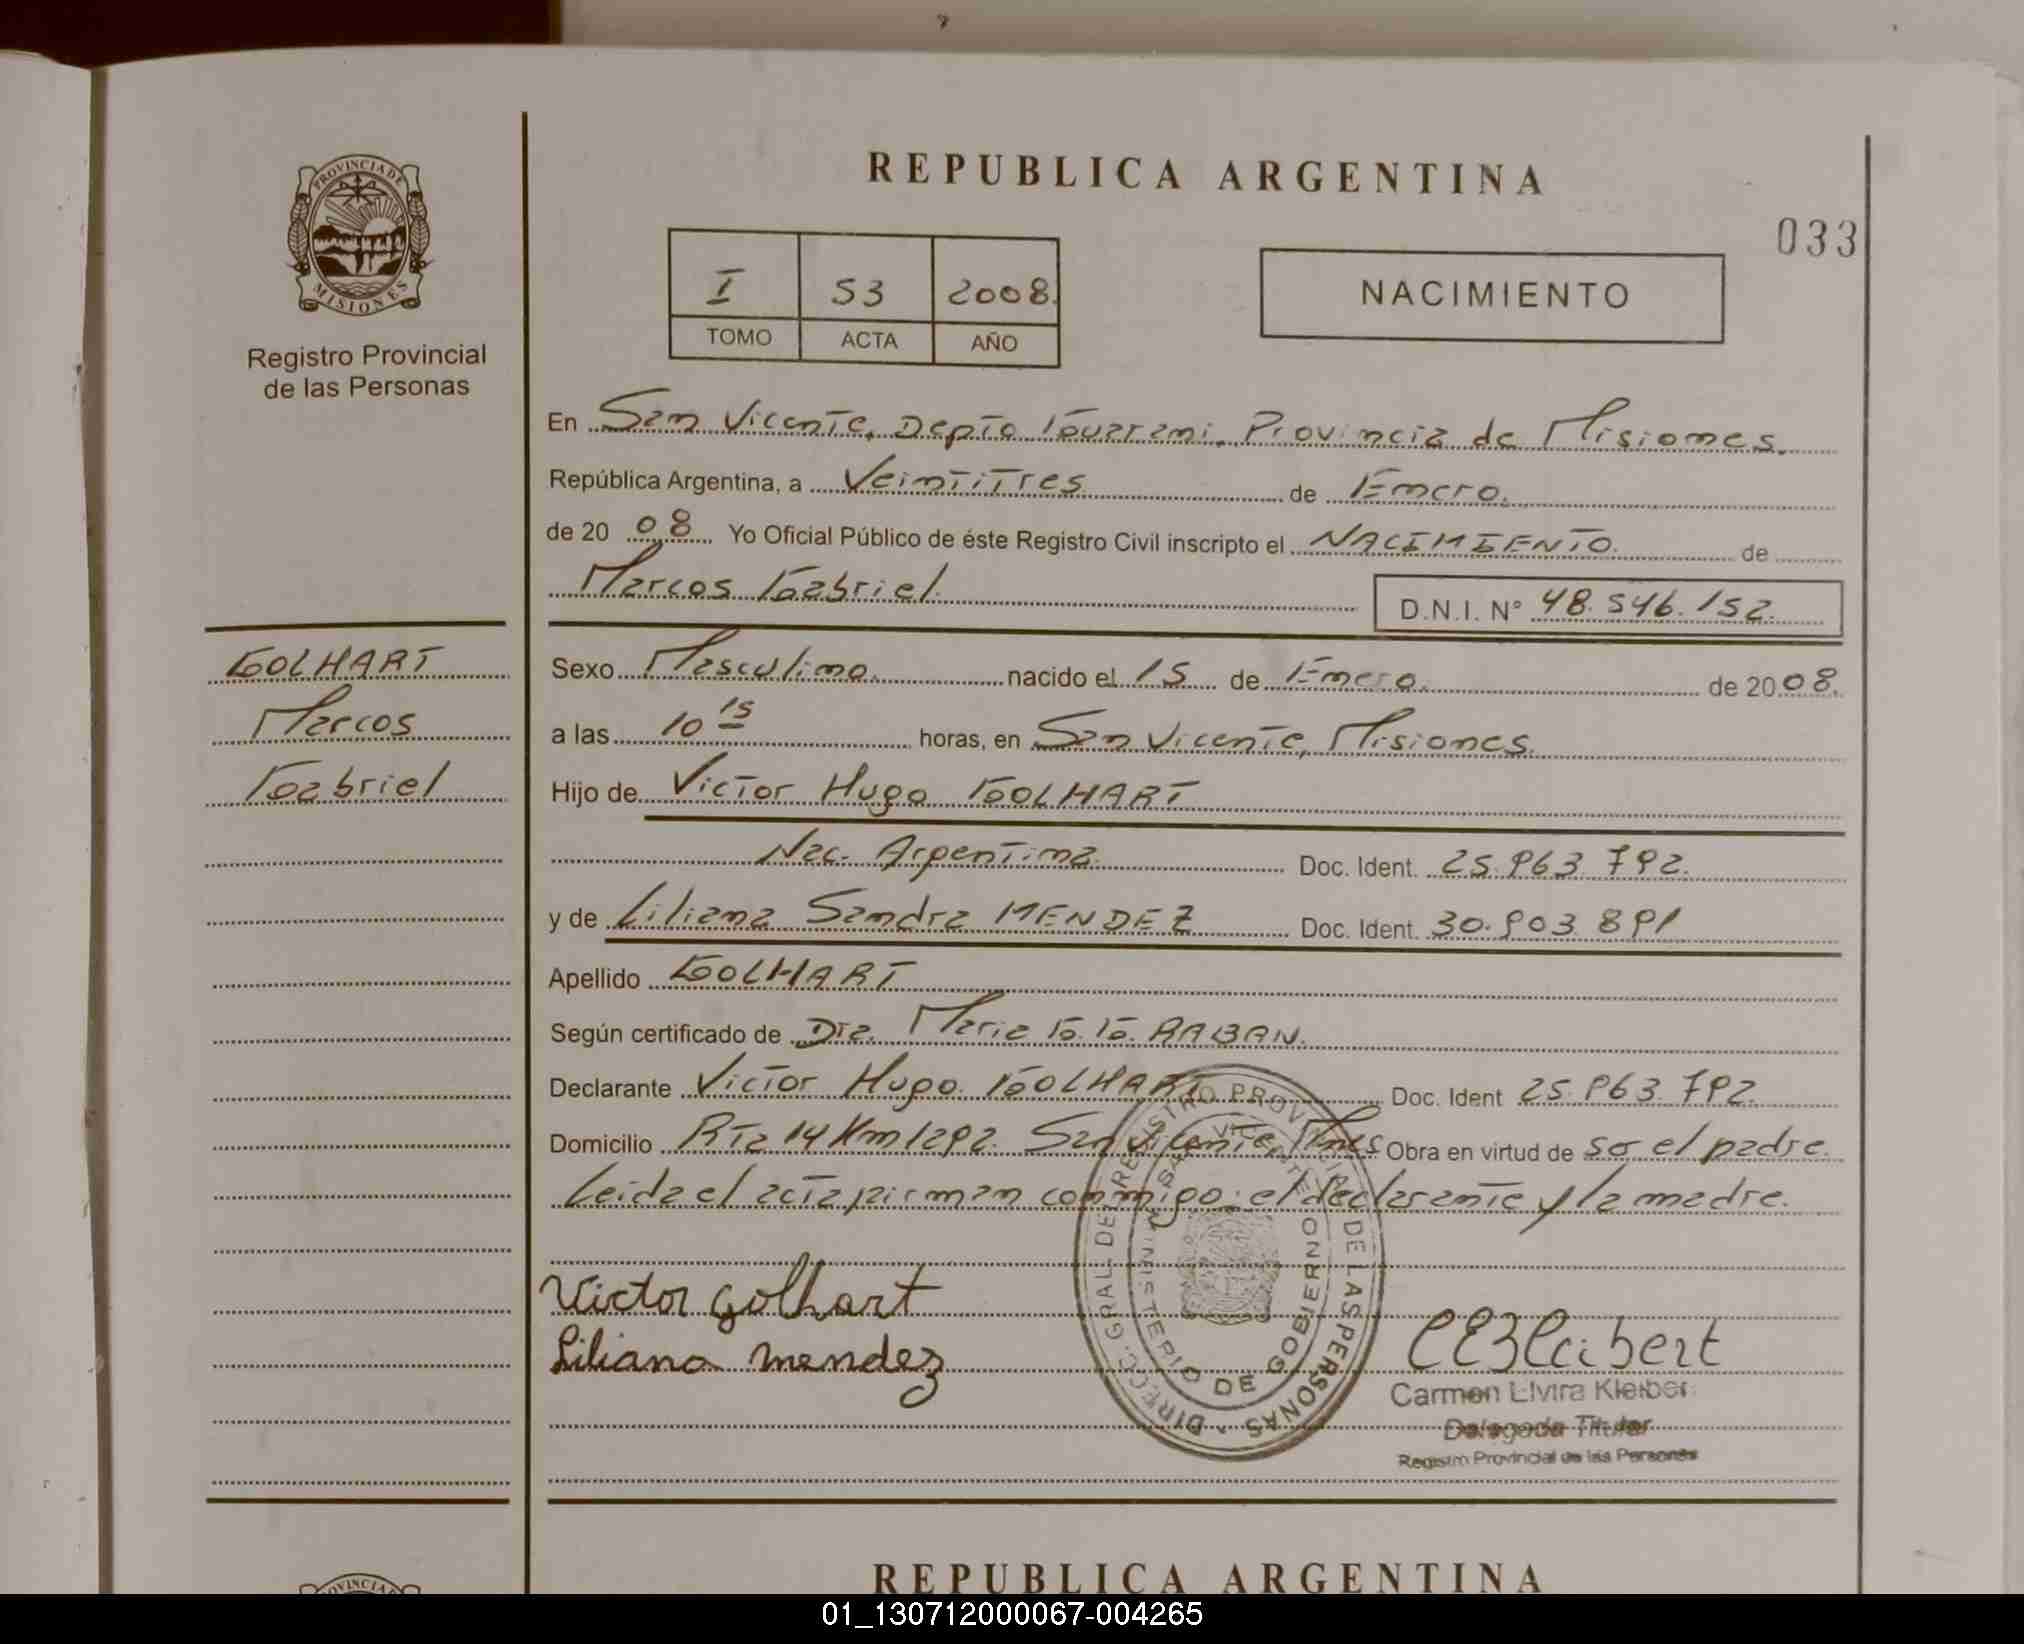 REPUBLICA ARGENTINA
033
PROVINCIA DE
MISIONES
Registro Provincial
de las Personas
I 53 2008.
TOMO ACTA AÑO
NACIMIENTO
En San Vicente, Depto Guarani, Provincia de Misiones.
República Argentina, a Veintitres de Enero.
de 20 08 Yo Oficial Público de éste Registro Civil inscripto el NACIMIENTO. de
Marcos Gabriel. D.N.I. N° 48.546.152.
GOLHART
Marcos
Gabriel
Sexo Masculino. nacido el 15 de Enero. de 20 08.
a las 10 15 horas, en San Vicente, Misiones.
Hijo de Victor Hugo GOLHART
Nac. Argentina. Doc. Ident. 25.963.792.
y de Liliana Sandra MENDEZ Doc. Ident. 30.903.891
Apellido GOLHART
Según certificado de Dra. Maria G. G. RABAN.
Declarante Victor Hugo. GOLHART Doc. Ident 25.963.792.
Domicilio Rta 14 Km 1292. San Vicente, Mnes Obra en virtud de ser el padre.
Leida el acta firman conmigo: el declarante y la madre.
Victor Golhart
Liliana mendez
DIRECC. GRAL. DEL REGISTRO PROVINCIAL DE LAS PERSONAS
SAN VICENTE
MINISTERIO DE GOBIERNO
CEKleibert
Carmen Elvira Kleiber
Delegada Titular
Registro Provincial de las Personas
REPUBLICA ARGENTINA
01_130712000067-004265